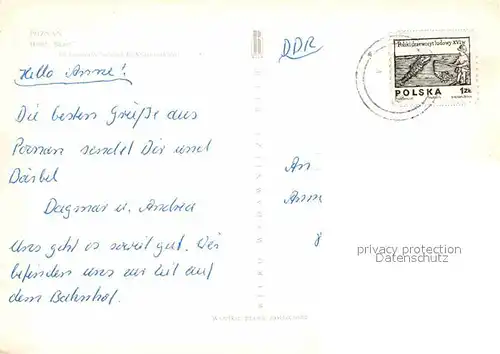 POZNAŃ
DDR
Polski drzeworyt ludowy XVI w.
POLSKA 1 ZŁ
Hallo Anne!
Die besten Grüße aus
Poznan sendet Dir und
Bärbel
Dagmar u. Andrea
Uns geht es soweit gut. Wir
befinden uns zur Zeit auf
dem Bahnhof.
An
Anne
privacy protection
Datenschutz